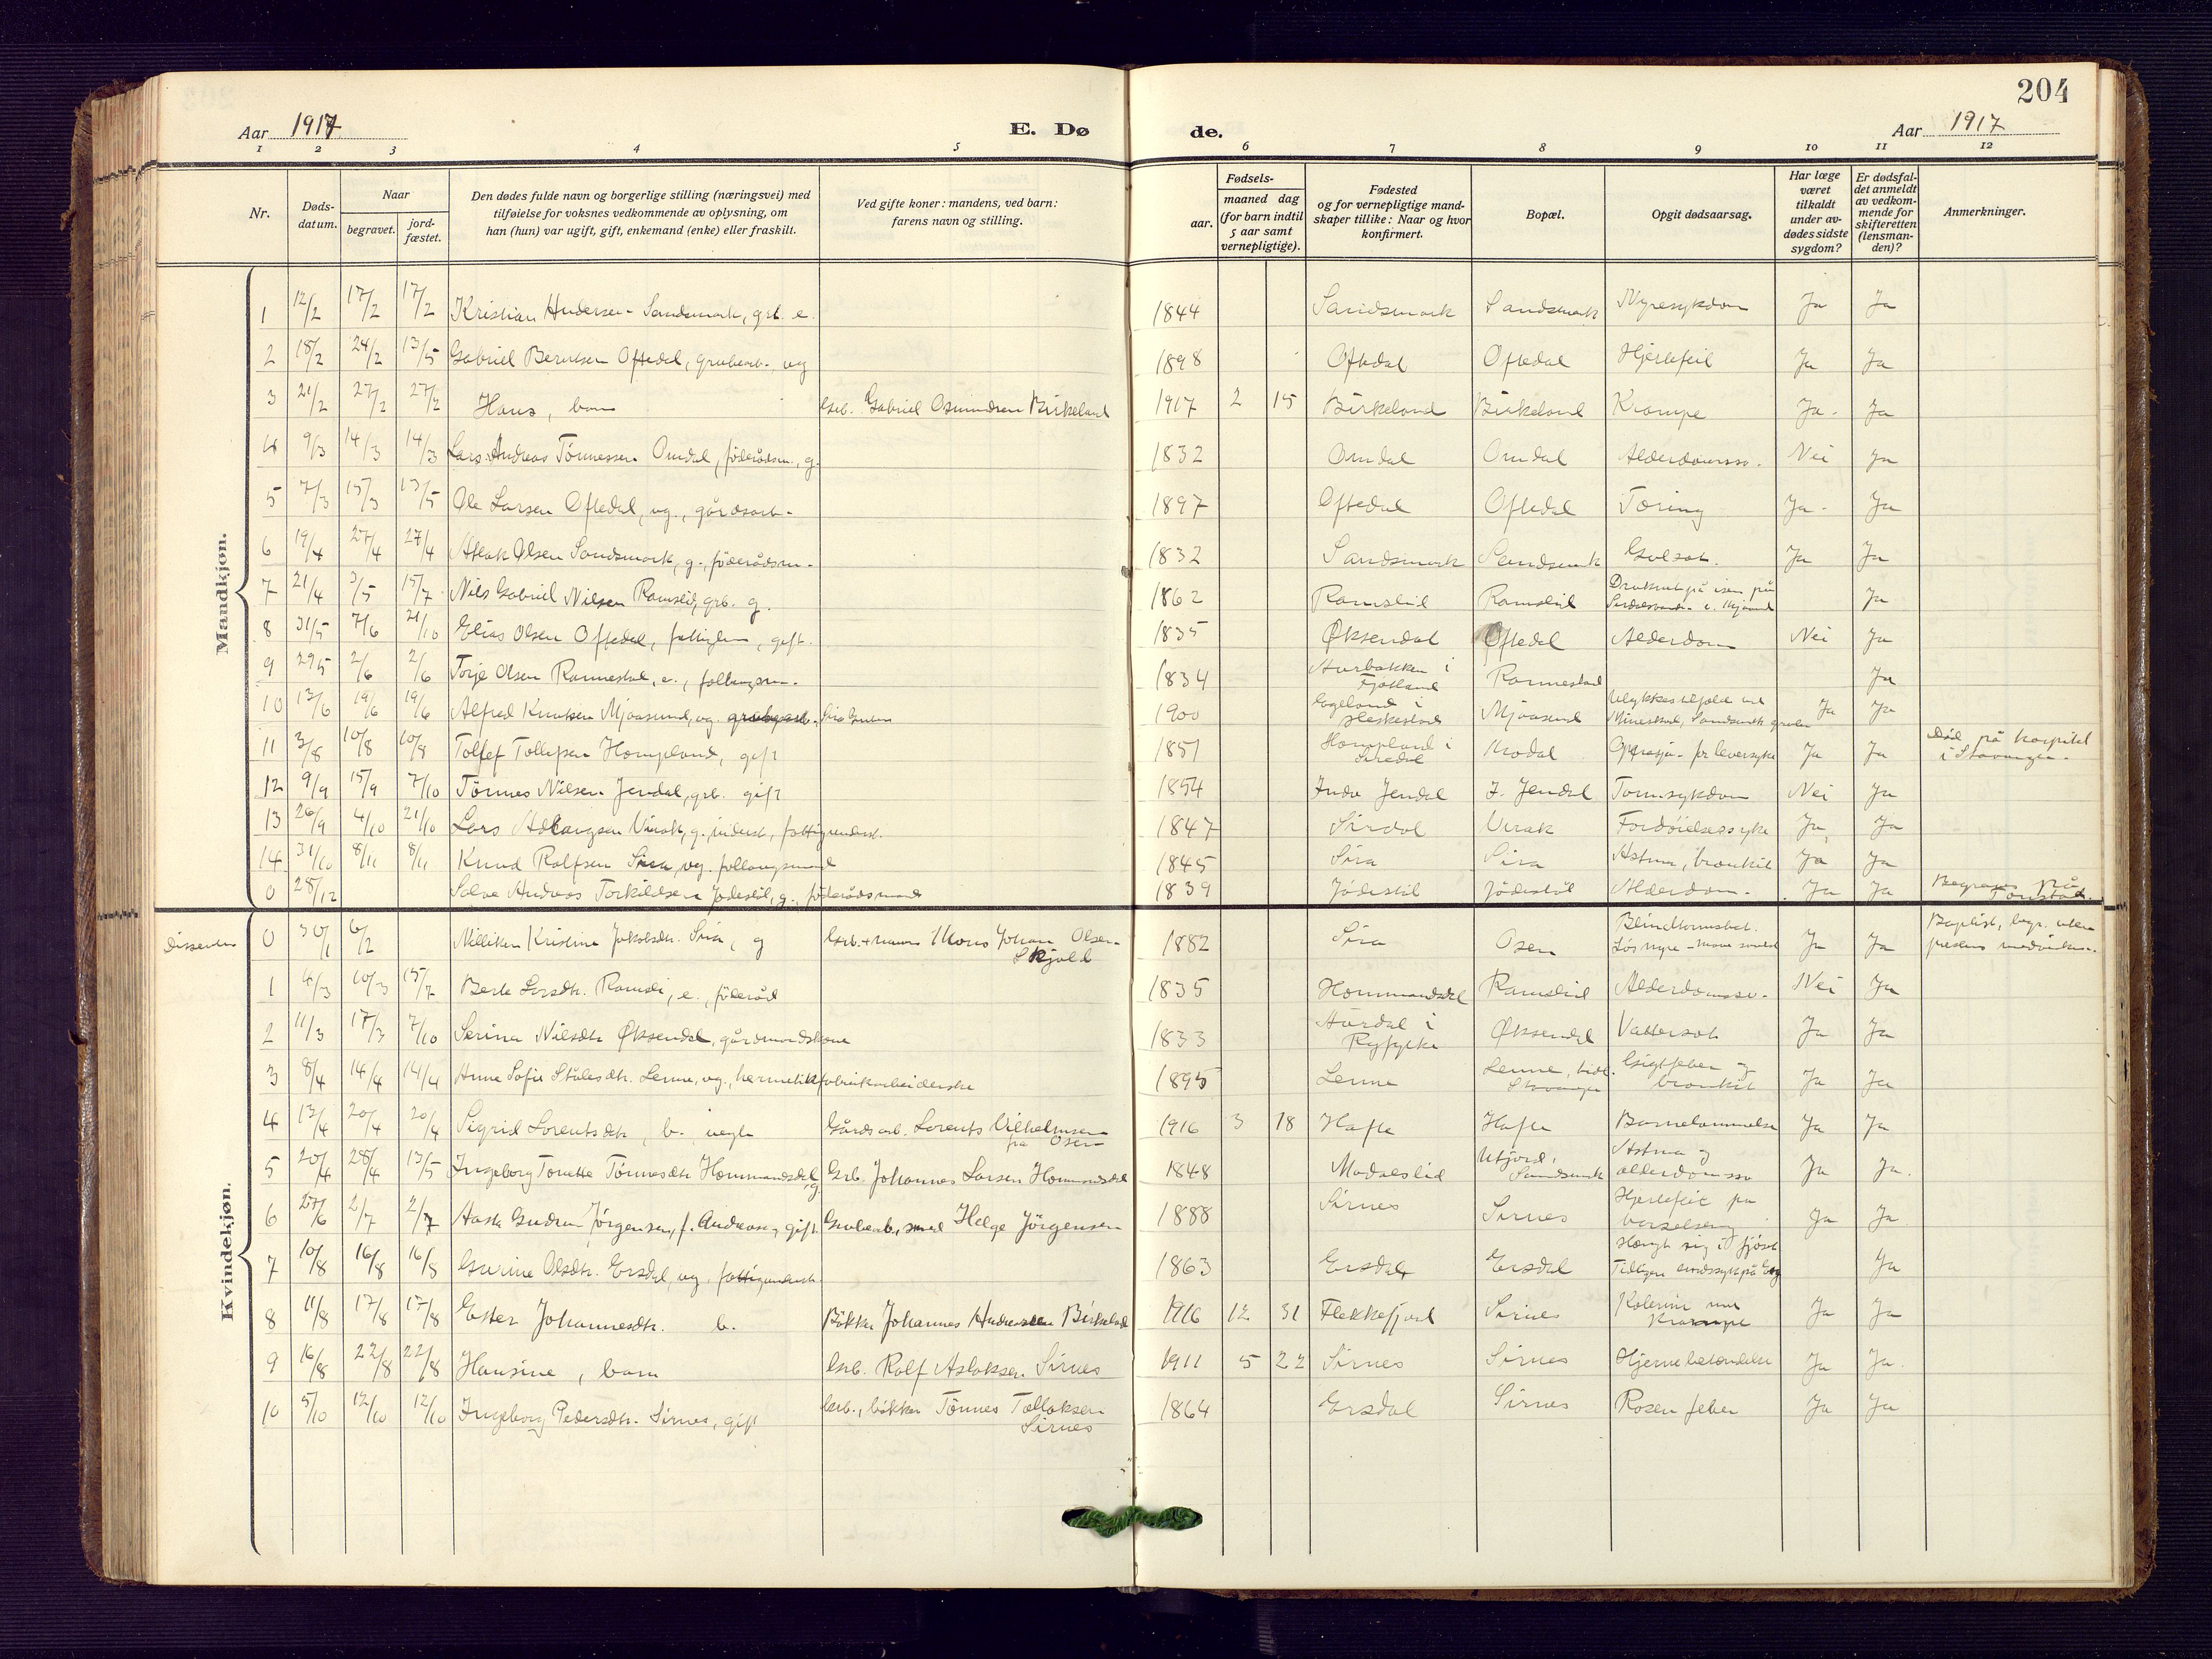 204
Aar 1917
E. Dø
de.
Aar 1917
1 2 3 4 5 6 7 8 9 10 11 12
Nr.
Døds-
datum.
Naar
begravet.
jord-
fæstet.
Den dødes fulde navn og borgerlige stilling (næringsvei) med
tilføielse for voksnes vedkommende av oplysning, om
han (hun) var ugift, gift, enkemand (enke) eller fraskilt.
Ved gifte koner: mandens, ved barn:
farens navn og stilling.
Fødsels-
aar.
maaned dag
(for barn indtil
5 aar samt
vernepligtige).
Fødested
og for vernepligtige mand-
skaper tillike: Naar og hvor
konfirmert.
Bopæl.
Opgit dødsaarsag.
Har læge
været
tilkaldt
under av-
dødes sidste
sygdom?
Er dødsfal-
det anmeldt
av vedkom-
mende for
skifteretten
(lensman-
den)?
Anmerkninger.
Mandkjøn.
1 12/2 17/2 17/2 Kristian Andersen Sandsmark, grb. e. 1844 Sandsmark Sandsmark Nyresykdom Ja Ja
2 18/2 24/2 13/5 Gabriel Berntsen Oftedal, grubearb., ug 1898 Oftedal Oftedal Hjertefeil Ja Ja
3 21/2 27/2 27/2 Hans, barn Grb. Gabriel Osmundsen Birkeland 1917 2 15 Birkeland Birkeland Krampe Ja Ja
4 9/3 14/3 14/3 Lars Andreas Tønnessen Omdal, føderådsm., g. 1832 Omdal Omdal Alderdomssv. Nei Ja
5 7/3 15/3 13/5 Ole Larsen Oftedal, ug., gårdsarb. 1897 Oftedal Oftedal Tæring Ja Ja
6 19/4 27/4 27/4 Aslak Olsen Sandsmark, g., føderådsm. 1832 Sandsmark Sandsmark Gulsot. Ja Ja
7 21/4 3/5 15/7 Nils Gabriel Nilsen Ramslid, grb. g. 1862 Ramslid Ramslid Druknet på isen på
Ja
8 31/5 7/6 21/10 Elias Olsen Oftedal, fattiglem, gift. 1835 Øksendal Oftedal Alderdom Nei Ja
9 29/5 2/6 2/6 Torje Olsen Rannestad, e., 1834 i
Fjotland Rannestad Ja
10 13/6 19/6 19/6 Alfred Knutsen Mjaasund, ug. Sira Gruber 1900 Eegeland i
Heskestad Mjaasund Ulykkestilfælde ved
Mineskud, Sandsmark gruber Ja Ja
11 3/8 10/8 10/8 Tollef Tollefsen Hompland, gift 1851 Hompland i
Siredal Modal for leversyke Ja Ja Død på hospital
i Stavanger.
12 9/9 15/9 7/10 Tønnes Nilsen Jendal, grb. gift 1854 Indre Jendal I. Jendal Tarmsykdom Nei Ja
13 26/9 4/10 21/10 Lars Virak, g., inderst, fattigunderst. 1847 Sirdal Virak Fordøielsessyke Ja Ja
14 31/10 8/11 8/11 Knud Rolfsen Sira, ug. 1845 Sira Sira Astma, bronkit Ja Ja
0 28/12 Salve Andreas Torkildsen Jødestøl, g., føderådsmand 1839 Jødestøl Jødestøl Alderdom. Ja Ja Begraves på
Tonstad.
Kvindekjøn.
Dissenter 0 30/1 6/2 Millikken Kristine Jakobsdtr. Sira, g Mons Johan Olsen
Skjold 1882 Sira Osen Blindtarmsbet.
Løs nyre Ja Ja Baptist, begr. uten
prestens medvirken.
1 4/3 10/3 15/7 Berte Larsdtr. Ramsli, e., føderåd 1835 Hommandsdal Ramslid Alderdomssv. Nei Ja
2 11/3 17/3 7/10 Serina Nilsdtr. Øksendal, gårdmandskone 1833 Aardal i
Ryfylke Øksendal Vattersot Ja Ja
3 8/4 14/4 14/4 Anne Sofie Ståles dtr. Lenne, ug., hermetikfabrikarbeiderske 1895 Lenne Lenne,
Stavanger Gigtfeber og
bronkit Ja Ja
4 13/4 20/4 20/4 Sigrid Lorentsdtr., b. uegte Gårdsarb. Lorents Vilhelmsen
fra Osen 1916 3 18 Hafte Hafte Barnelammelse Ja Ja
5 20/4 28/4 13/5 Ingeborg Tonette Tønnesdtr. Hommandsdal, g. Grb. Johannes Larsen Hommandsdal 1848 Modaslid Utjord,
Sandsmark Astma og
alderdomssv Ja Ja.
6 27/6 2/7 2/7 Aasta Gudrun Jørgensen, f. Andreasen, gift Grubearb., smed Helge Jørgensen 1888 Sirnes Sirnes Hjertefeil på
barselseng Ja Ja
7 10/8 16/8 16/8 Gurine Olsdtr. Ersdal, ug. fattigunderst. 1863 Ersdal Ersdal Hængt sig i fjøset
Tidligere sindssyk på Eeg Ja
8 11/8 17/8 17/8 Ester Johannesdtr. b. Bøkker Johannes Andreassen Birkeland 1916 12 31 Flekkefjord Sirnes Kolerine med
Krampe Ja Ja
9 16/8 22/8 22/8 Hansine, barn Grb. Rolf Aslaksen Sirnes 1911 5 22 Sirnes Sirnes Hjernebetændelse Ja Ja
10 5/10 12/10 12/10 Ingeborg Pedersdtr. Sirnes, gift Grb., bøkker Tønnes Tollaksen
Sirnes 1864 Ersdal Sirnes Rosen feber Ja Ja